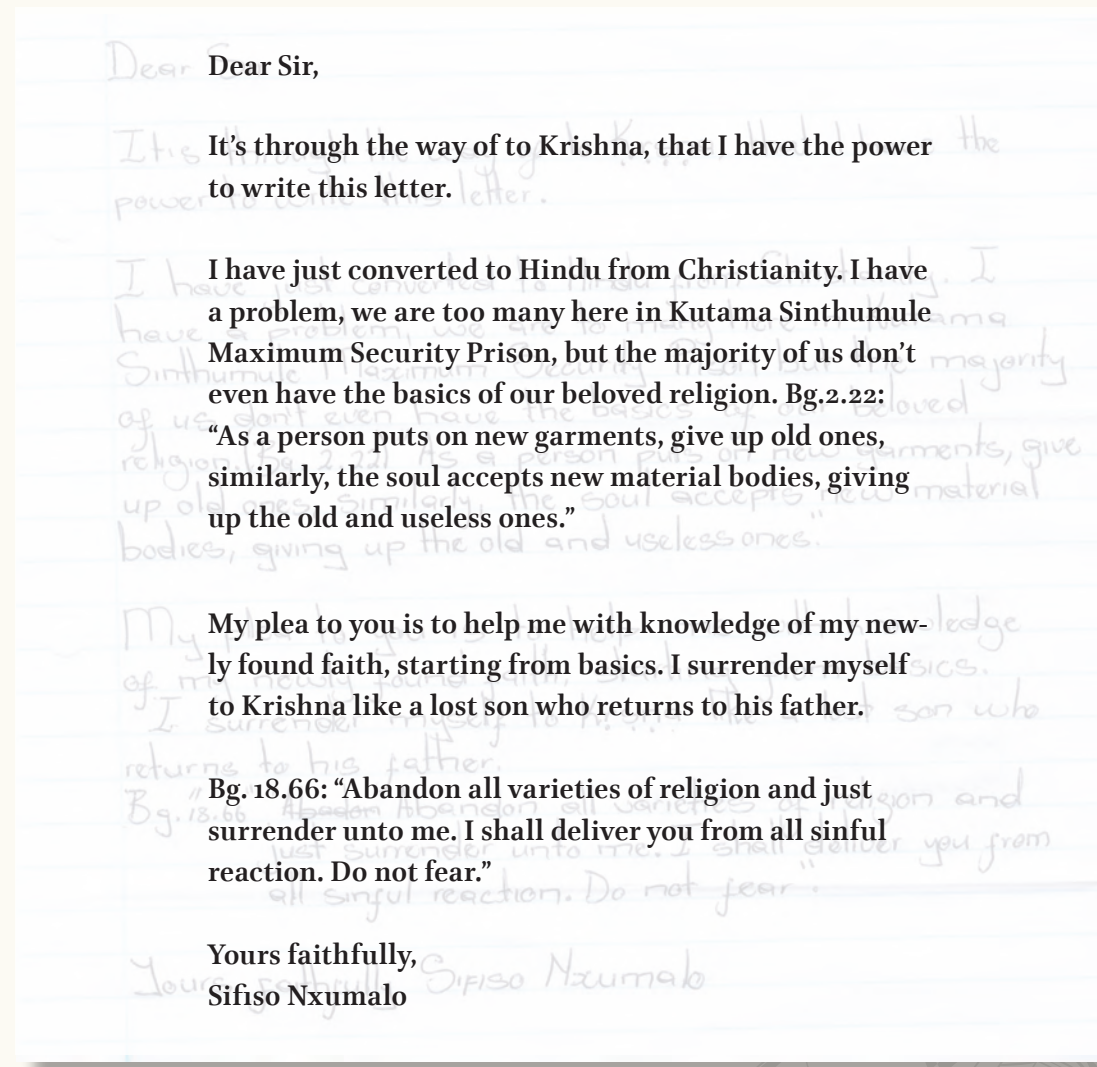 Dear Sir,
It's through the way of to Krishna, that I have the power
to write this letter.
I have just converted to Hindu from Christianity. I have
a problem, we are too many here in Kutama Sinthumule
Maximum Security Prison, but the majority of us don't
even have the basics of our beloved religion. Bg.2.22:
“As a person puts on new garments, give up old ones,
similarly, the soul accepts new material bodies, giving
up the old and useless ones.”
My plea to you is to help me with knowledge of my new-
ly found faith, starting from basics. I surrender myself
to Krishna like a lost son who returns to his father.
Bg. 18.66: “Abandon all varieties of religion and just
surrender unto me. I shall deliver you from all sinful
reaction. Do not fear.”
Yours faithfully,
Sifiso Nxumalo